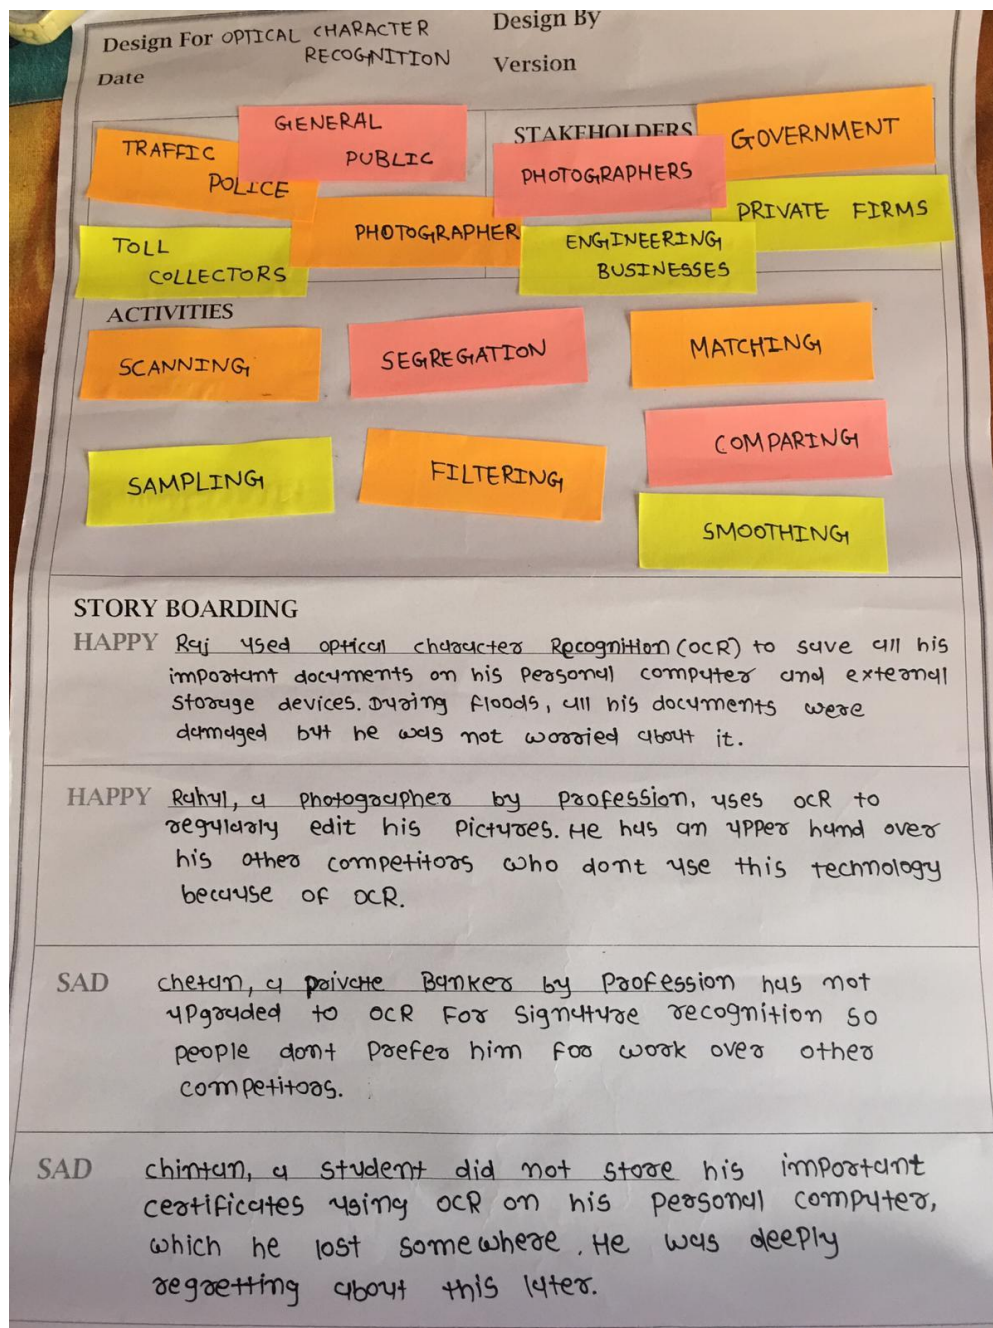 Design For OPTICAL CHARACTER
RECOGNITION
Design By
Date
Version
GENERAL
PUBLIC
TRAFFIC
POLICE
PHOTOGRAPHER
TOLL
COLLECTORS
STAKEHOLDERS
GOVERNMENT
PHOTOGRAPHERS
PRIVATE FIRMS
ENGINEERING
BUSINESSES
ACTIVITIES
SCANNING
SEGREGATION
MATCHING
COMPARING
SAMPLING
FILTERING
SMOOTHING
STORY BOARDING
HAPPY Raj used optical character Recognition (OCR) to save all his
important documents on his personal computer and external
storage devices. During floods, all his documents were
damaged but he was not worried about it.
HAPPY Rahul, a photographer by profession, uses OCR to
regularly edit his pictures. He has an upper hand over
his other competitors who dont use this technology
because of OCR.
SAD chetan, a private Banker by profession has not
upgraded to OCR for signature recognition so
people dont prefer him for work over other
competitors.
SAD chintan, a student did not store his important
certificates using OCR on his personal computer,
which he lost somewhere. He was deeply
regretting about this later.